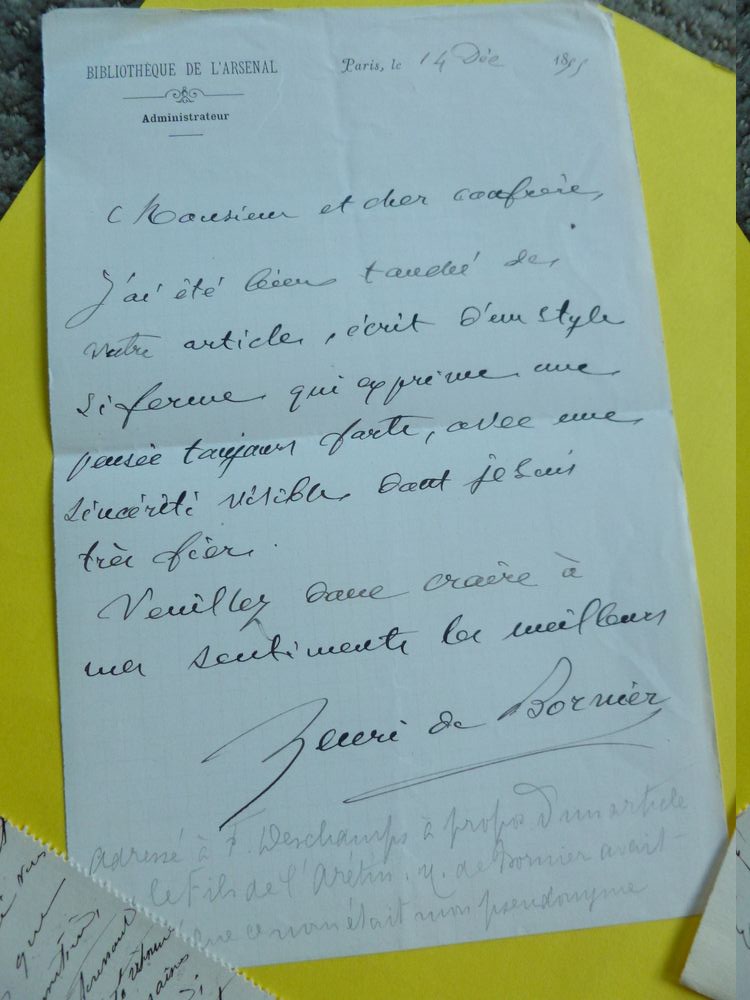 BIBLIOTHÈQUE DE L'ARSENAL
Administrateur
Paris, le 14 Déc 1895
Monsieur et cher confrère,
J'ai été bien touché de
votre article, écrit d'un style
si ferme qui exprime une
pensée toujours forte, avec une
sincérité visible dont je suis
très fier.
Veuillez donc croire à
mes sentiments les meilleurs
Henri de Bornier
adressé à F. Deschamps à propos d'un article
le Fils de l'Arétin. M. de Bornier avait
que ce nom était mon pseudonyme
que